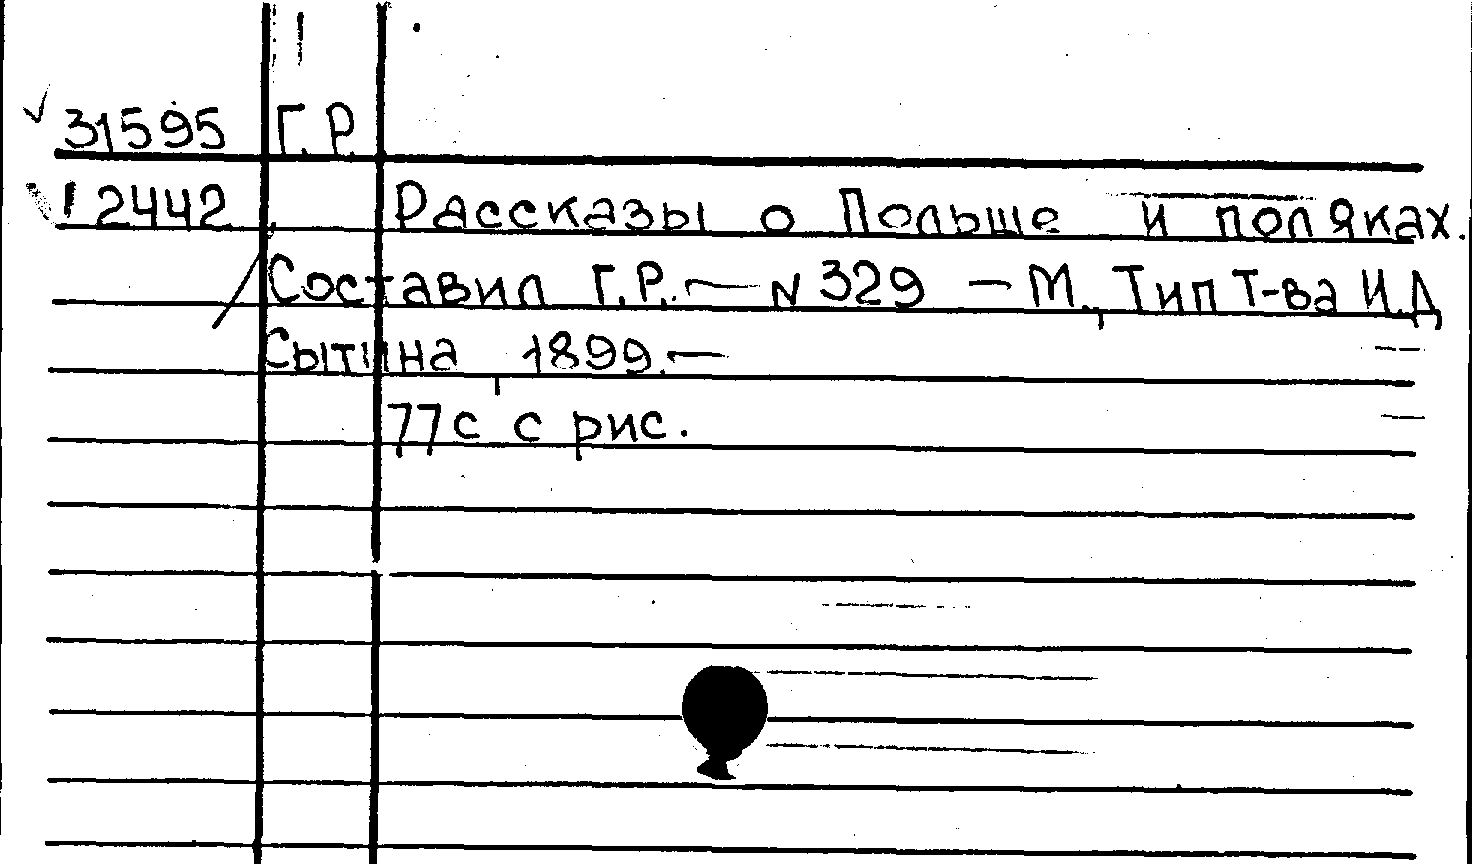 31595 Г.Р.
12442 Рассказы о Польше и поляках.
Составил Г.Р. — N 329 — М., Тип Т-ва И.Д
Сытина, 1899. —
77с с рис.